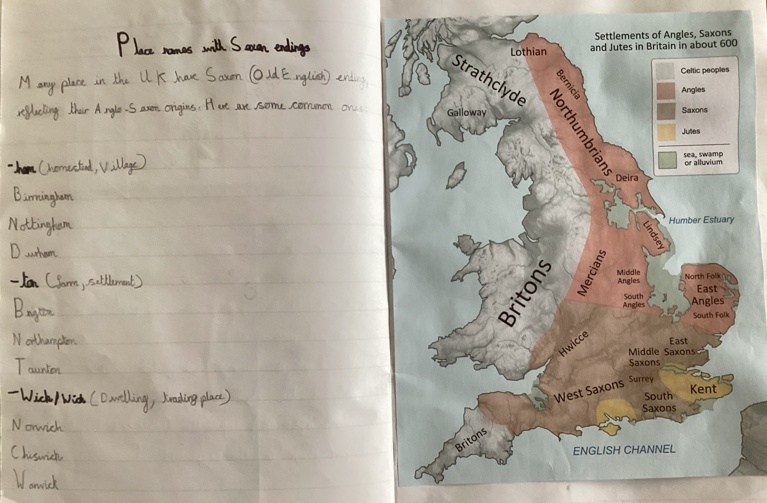 Place names with Saxon endings
Many place in the UK have Saxon (Old English) ending
reflecting their Anglo-Saxon origins. Here are some common ones
-ham (homestead, village)
Birmingham
Nottingham
Durham
-ton (farm, settlement)
Northampton
Taunton
-Wich/wich (Dwelling, trading place)
Norwich
Chiswick
Warwick
Settlements of Angles, Saxons
and Jutes in Britain in about 600
Celtic peoples
Angles
Saxons
Jutes
sea, swamp
or alluvium
Lothian
Strathclyde
Bernicia
Galloway
Northumbrians
Deira
Humber Estuary
Lindsey
Mercians
Britons
Middle
Angles
South
Angles
North Folk
East
Angles
South Folk
Hwicce
East
Saxons
Middle
Saxons
Surrey
Kent
West Saxons
South
Saxons
Britons
ENGLISH CHANNEL